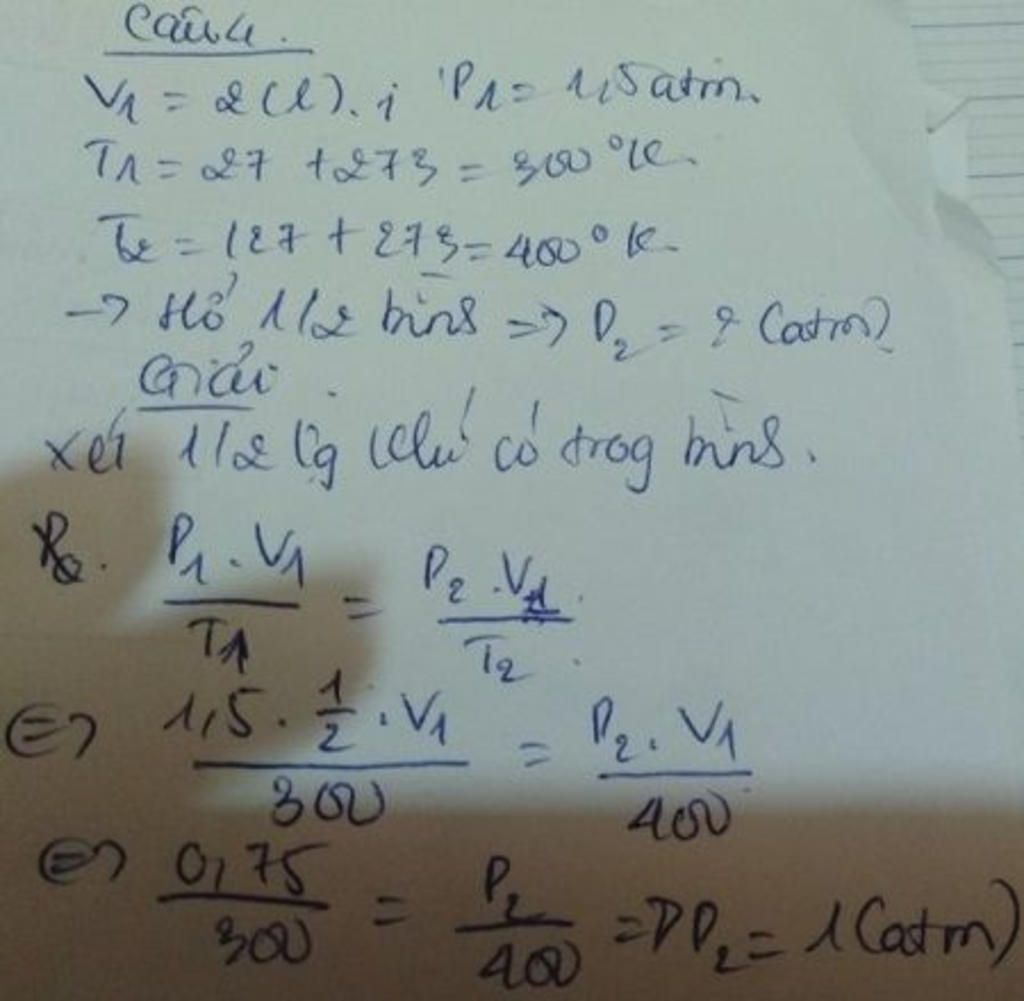 Câu 4.
V1 = 2(l). ; P1 = 1,5 atm.
T1 = 27 + 273 = 300 °K.
T2 = 127 + 273 = 400 °K.
-> Hở 1/2 bình => P2 = ? (atm)
Giải
xét 1/2 lg khí có trog bình.
P1 . V1 / T1 = P2 . V1 / T2
<=> 1,5 . 1/2 . V1 / 300 = P2 . V1 / 400
<=> 0,75 / 300 = P2 / 400 => P2 = 1 (atm)